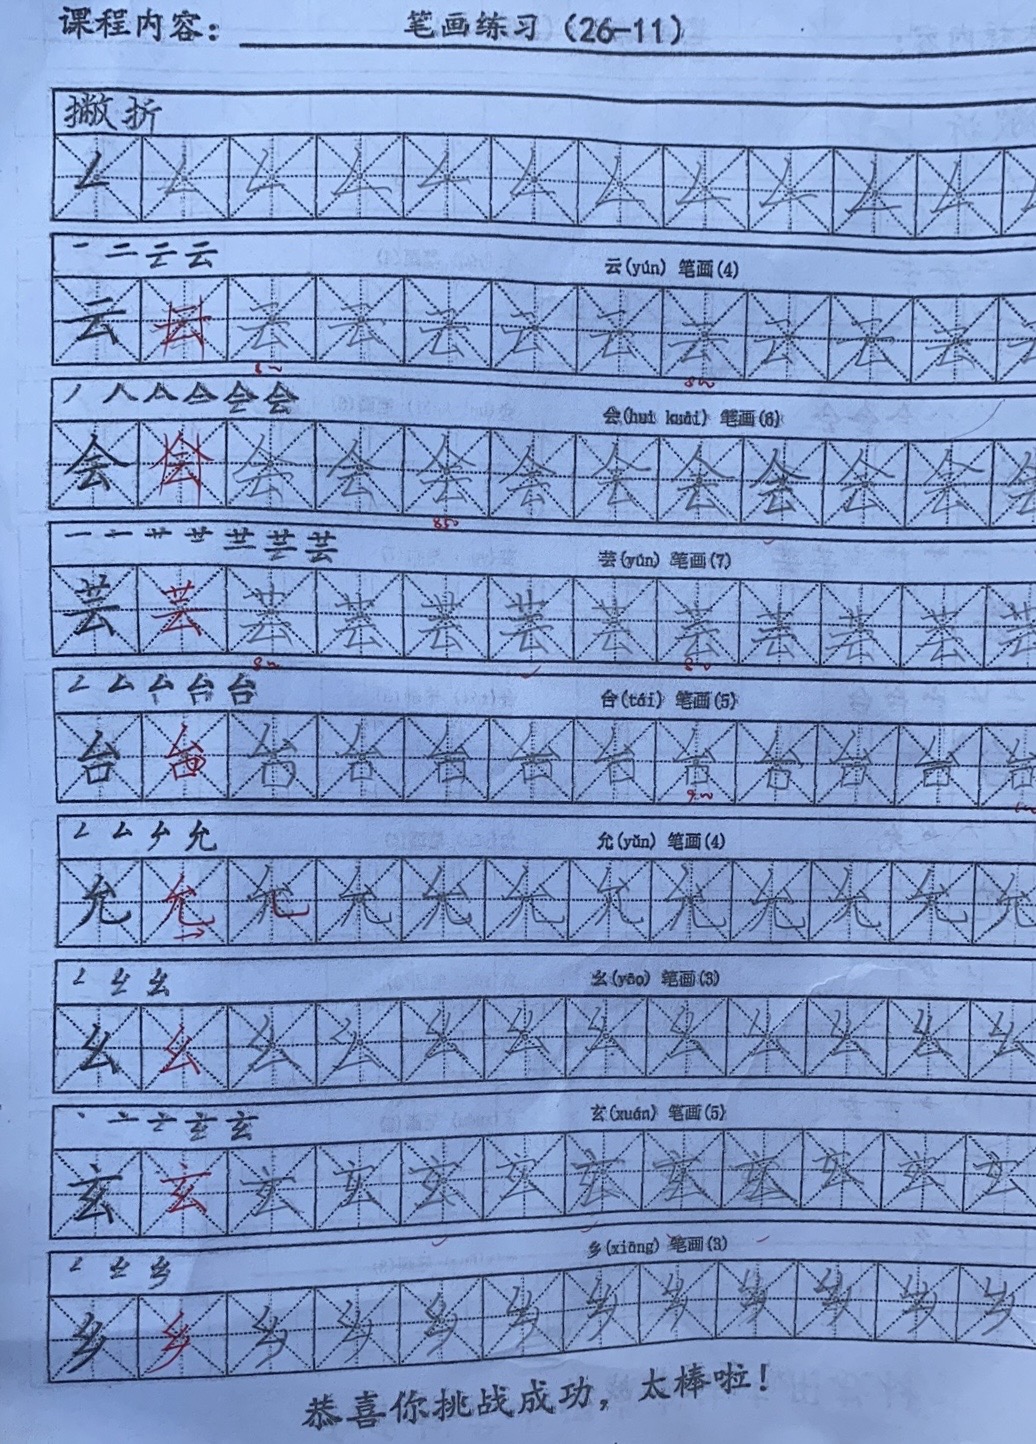 课程内容：笔画练习（26-11）
撇折
𠃋 𠃋 𠃋 𠃋 𠃋 𠃋 𠃋 𠃋 𠃋 𠃋 𠃋
一 二 云 云(yún) 笔画(4)
云 云 云 云 云 云 云 云 云 云 云
丿 人 会 会(huì kuài) 笔画(6)
会 会 会 会 会 会 会 会 会 会 会 会
一 芸 芸(yún) 笔画(7)
芸 芸 芸 芸 芸 芸 芸 芸 芸 芸 芸 芸
𠃋 厶 台 台(tái) 笔画(5)
台 台 台 台 台 台 台 台 台 台 台 台
𠃋 厶 允 允(yǔn) 笔画(4)
允 允 允 允 允 允 允 允 允 允 允 允
𠃋 幺 幺(yāo) 笔画(3)
幺 幺 幺 幺 幺 幺 幺 幺 幺 幺 幺 幺
丶 亠 玄 玄(xuán) 笔画(5)
玄 玄 玄 玄 玄 玄 玄 玄 玄 玄 玄 玄
𠃋 乡 乡(xiāng) 笔画(3)
乡 乡 乡 乡 乡 乡 乡 乡 乡 乡 乡 乡
恭喜你挑战成功，太棒啦！